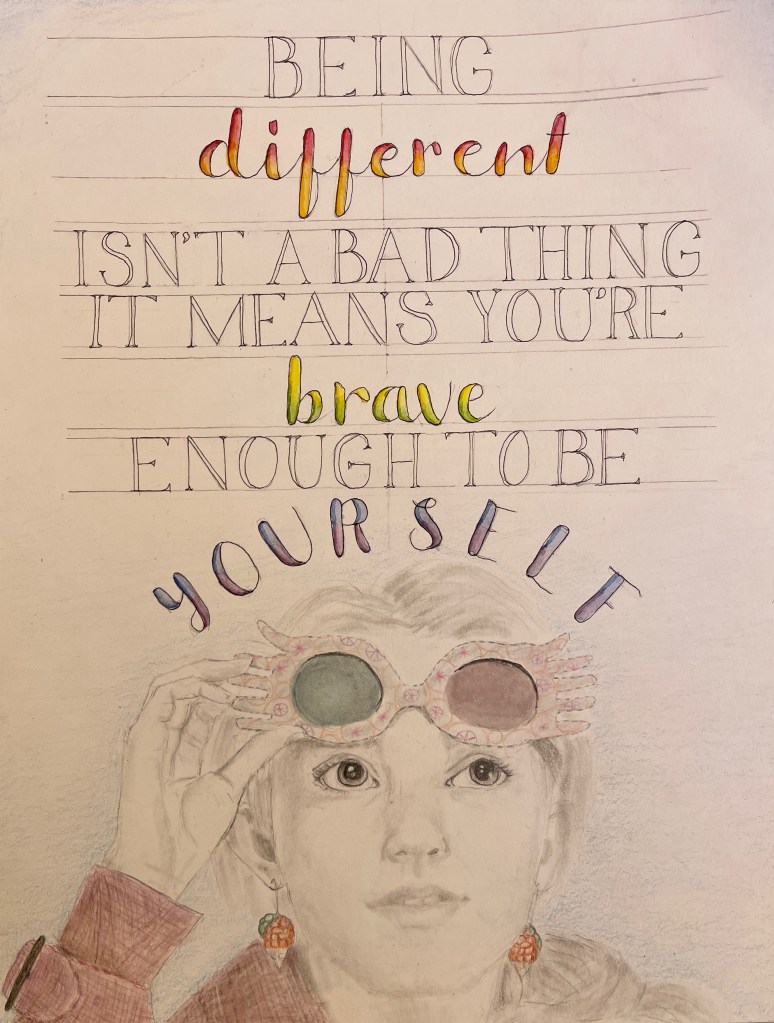 BEING
different
ISN'T A BAD THING
IT MEANS YOU'RE
brave
ENOUGH TO BE
YOURSELF